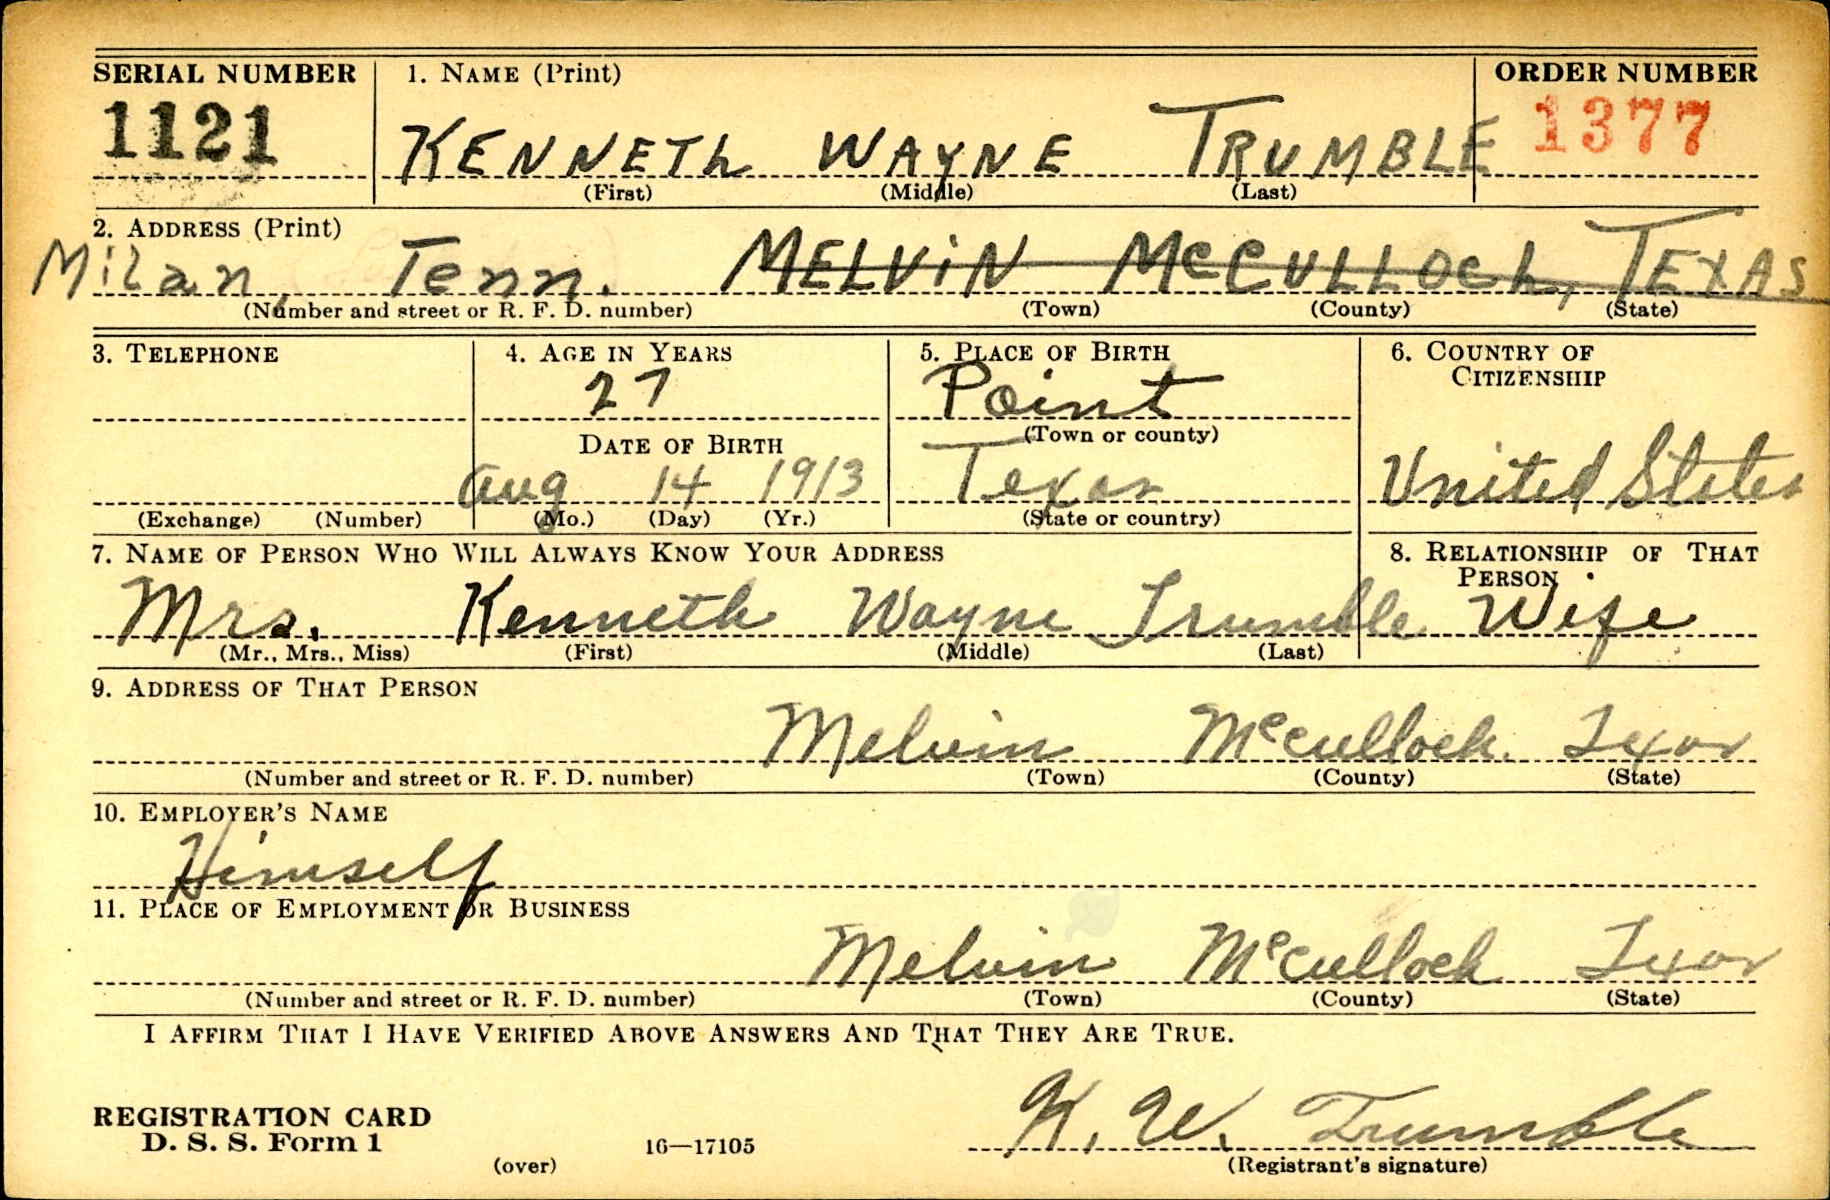 SERIAL NUMBER 1. NAME (Print) ORDER NUMBER
1121 KENNETh WAYNE TRUMBLE 1377
(First) (Middle) (Last)
2. ADDRESS (Print)
Milan, Tenn. MELViN McCULLOCh, TEXAS
(Number and street or R. F. D. number) (Town) (County) (State)
3. TELEPHONE 4. AGE IN YEARS 5. PLACE OF BIRTH 6. COUNTRY OF
CITIZENSHIP
27 Point
(Town or county)
DATE OF BIRTH
Aug 14 1913 Texas United States
(Exchange) (Number) (Mo.) (Day) (Yr.) (State or country)
7. NAME OF PERSON WHO WILL ALWAYS KNOW YOUR ADDRESS 8. RELATIONSHIP OF THAT
PERSON
Mrs. Kenneth Wayne Trumble Wife
(Mr., Mrs., Miss) (First) (Middle) (Last)
9. ADDRESS OF THAT PERSON
Melvin McCulloch. Texas
(Number and street or R. F. D. number) (Town) (County) (State)
10. EMPLOYER'S NAME
Himself
11. PLACE OF EMPLOYMENT OR BUSINESS
Melvin McCulloch Texas
(Number and street or R. F. D. number) (Town) (County) (State)
I AFFIRM THAT I HAVE VERIFIED ABOVE ANSWERS AND THAT THEY ARE TRUE.
K. W. Trumble
REGISTRATION CARD
D. S. S. Form 1 16—17105
(over) (Registrant's signature)